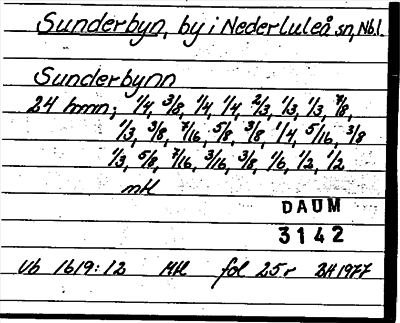 Sunderbyn, by i Nederluleå sn, Nb l.
Sunderbynn
24 hmn; 1/4, 3/8, 1/4, 1/4, 2/3, 1/3, 1/3, 7/8,
1/3, 3/8, 7/16, 5/8, 3/8, 1/4, 5/16, 3/8
1/3, 5/8, 7/16, 3/16, 3/8, 1/6, 1/2, 1/2
mtl
DAUM
3142
Vb 1619:12 Mtl fol 25r BH 1977